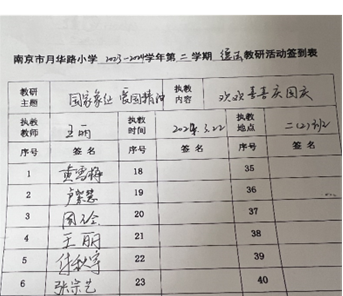 南京市月华路小学 2023-2024学年第 二 学期 德法 教研活动签到表
教研主题 国家象征 爱国精神 执教内容 欢欢喜喜庆国庆
执教教师 王丽 执教时间 2024.3.22 执教地点 二(2)班
序号 签名 序号 签名 序号 签名
1 黄雪梅 18 35
2 19 36
3 20 37
4 王丽 21 38
5 22 39
6 张宗艺 23 40